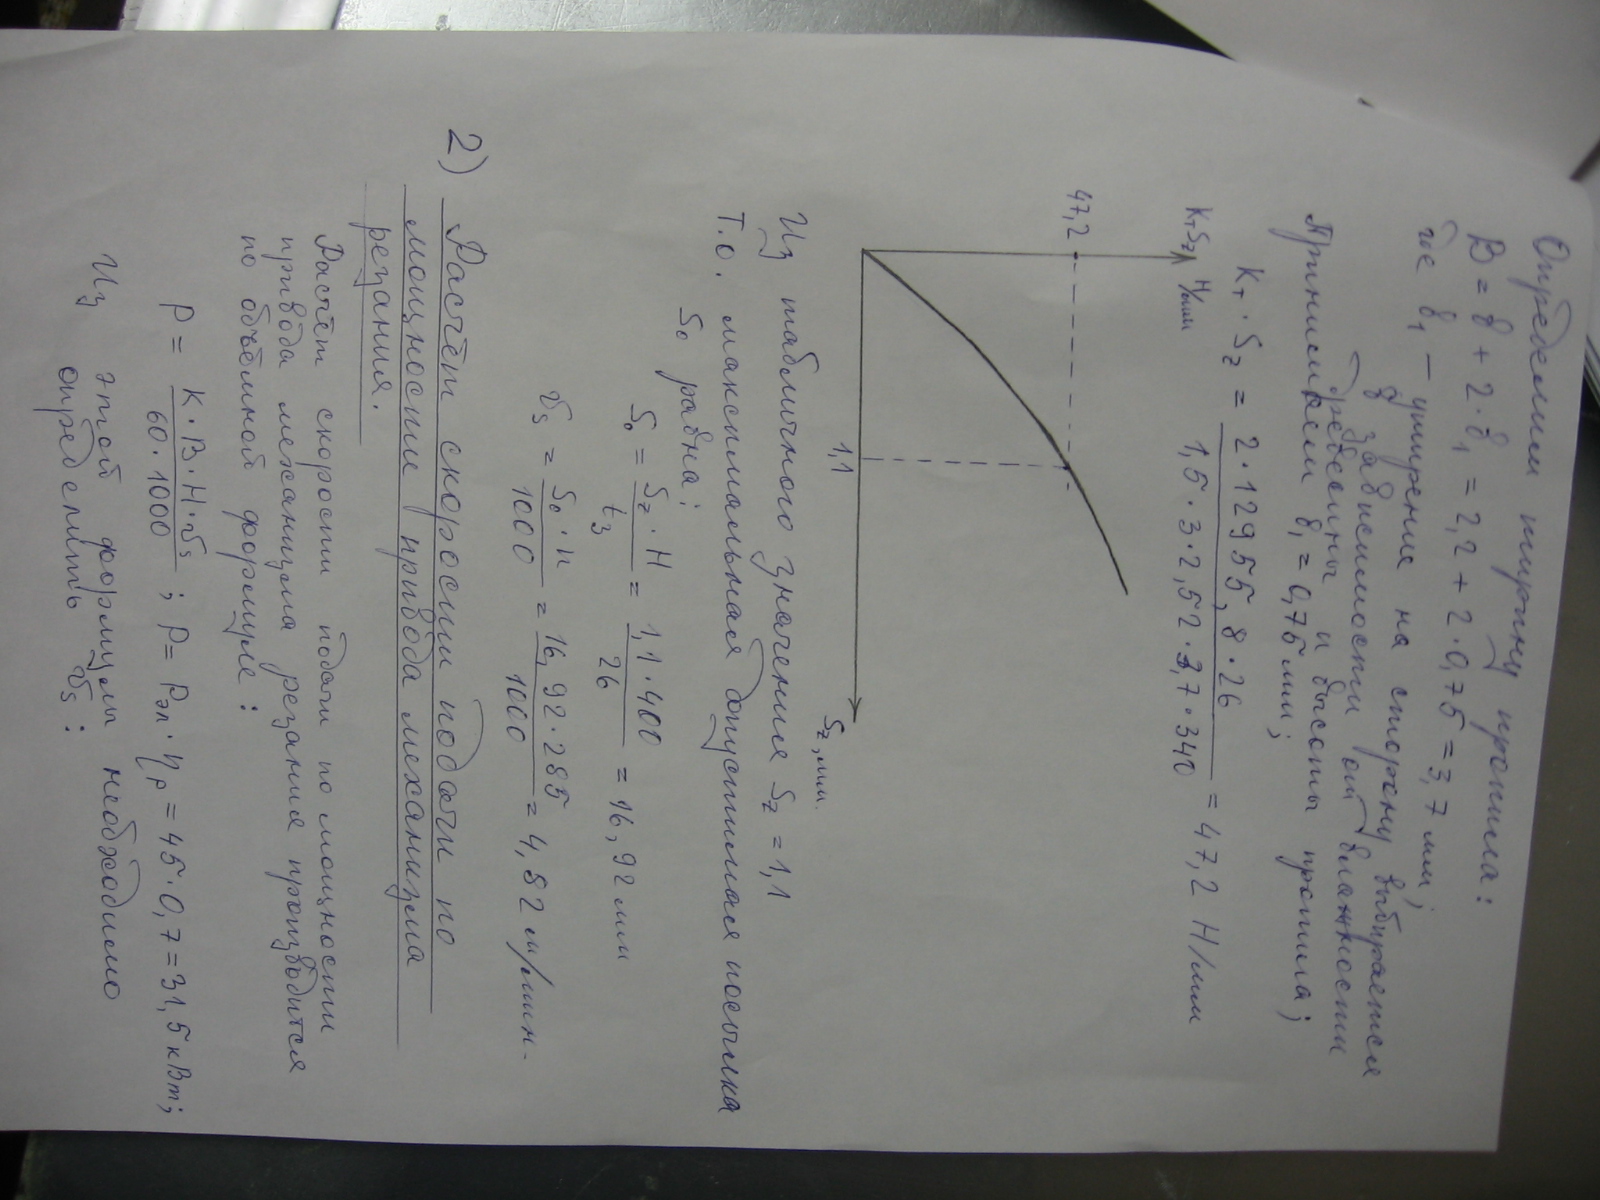 Определим ширину пропила:
B = b + 2·b₁ = 2,2 + 2·0,75 = 3,7 мм;
где b₁ – уширение на сторону, выбирается
в зависимости от влажности
древесины и высоты пропила;
Принимаем b₁ = 0,75 мм;
Kт · Sz = 2·12955,8·26 / 1,5·3·2,52·3,7·340 = 47,2 Н/мм
KтSz, Н/мм
47,2
1,1
Sz, мм.
Из табличного значения Sz = 1,1
Т.о. максимальная допустимая посылка
S₀ равна:
S₀ = Sz·H / tз = 1,1·400 / 26 = 16,92 мм
𝒱s = S₀·n / 1000 = 16,92·285 / 1000 = 4,82 м/мин.
2) Расчёт скорости подачи по
мощности привода механизма
резания.
Расчёт скорости подачи по мощности
привода механизма резания производится
по объёмной формуле:
P = K·B·H·𝒱s / 60·1000 ; P = Pэл·ηр = 45·0,7 = 31,5 кВт;
Из этой формулы необходимо
определить 𝒱s: